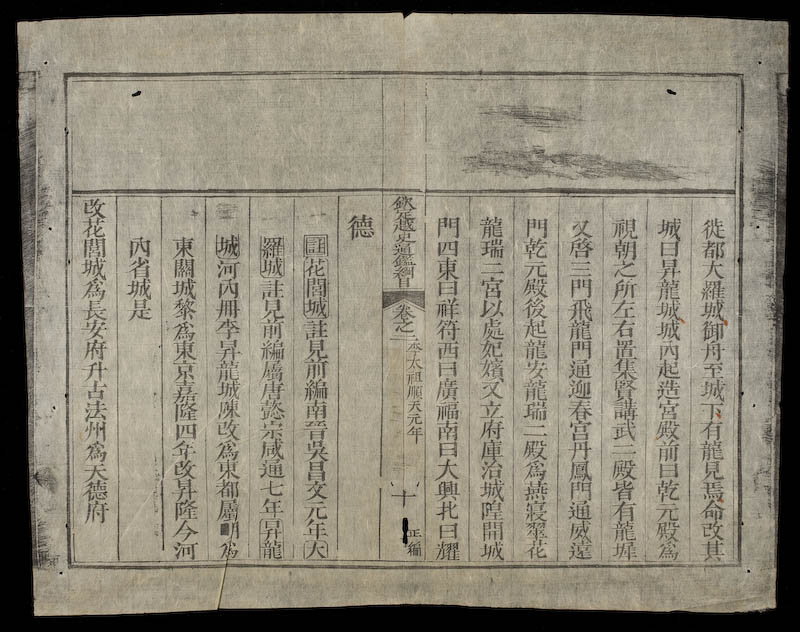 徙都大羅城御舟至城下有龍見焉命改其
城曰昇龍城城內起造宮殿前曰乾元殿爲
視朝之所左右置集賢講武二殿皆有龍墀
又啓三門飛龍門通迎春宮丹鳳門通威遠
門乾元殿後起龍安龍瑞二殿爲燕寢翠花
龍瑞二宮以處妃嬪又立府庫治城隍開城
門四東曰祥符西曰廣福南曰大興北曰耀
欽定越史通鑑綱目 卷之二 李太祖順天元年 十 正編
德
註花閭城註見前編南晉吳昌文元年大
羅城註見前編屬唐懿宗咸通七年昇龍
城河內冊李昇龍城陳改爲東都屬明爲
東關城黎爲東京嘉隆四年改昇隆今河
內省城是
改花閭城爲長安府升古法州爲天德府